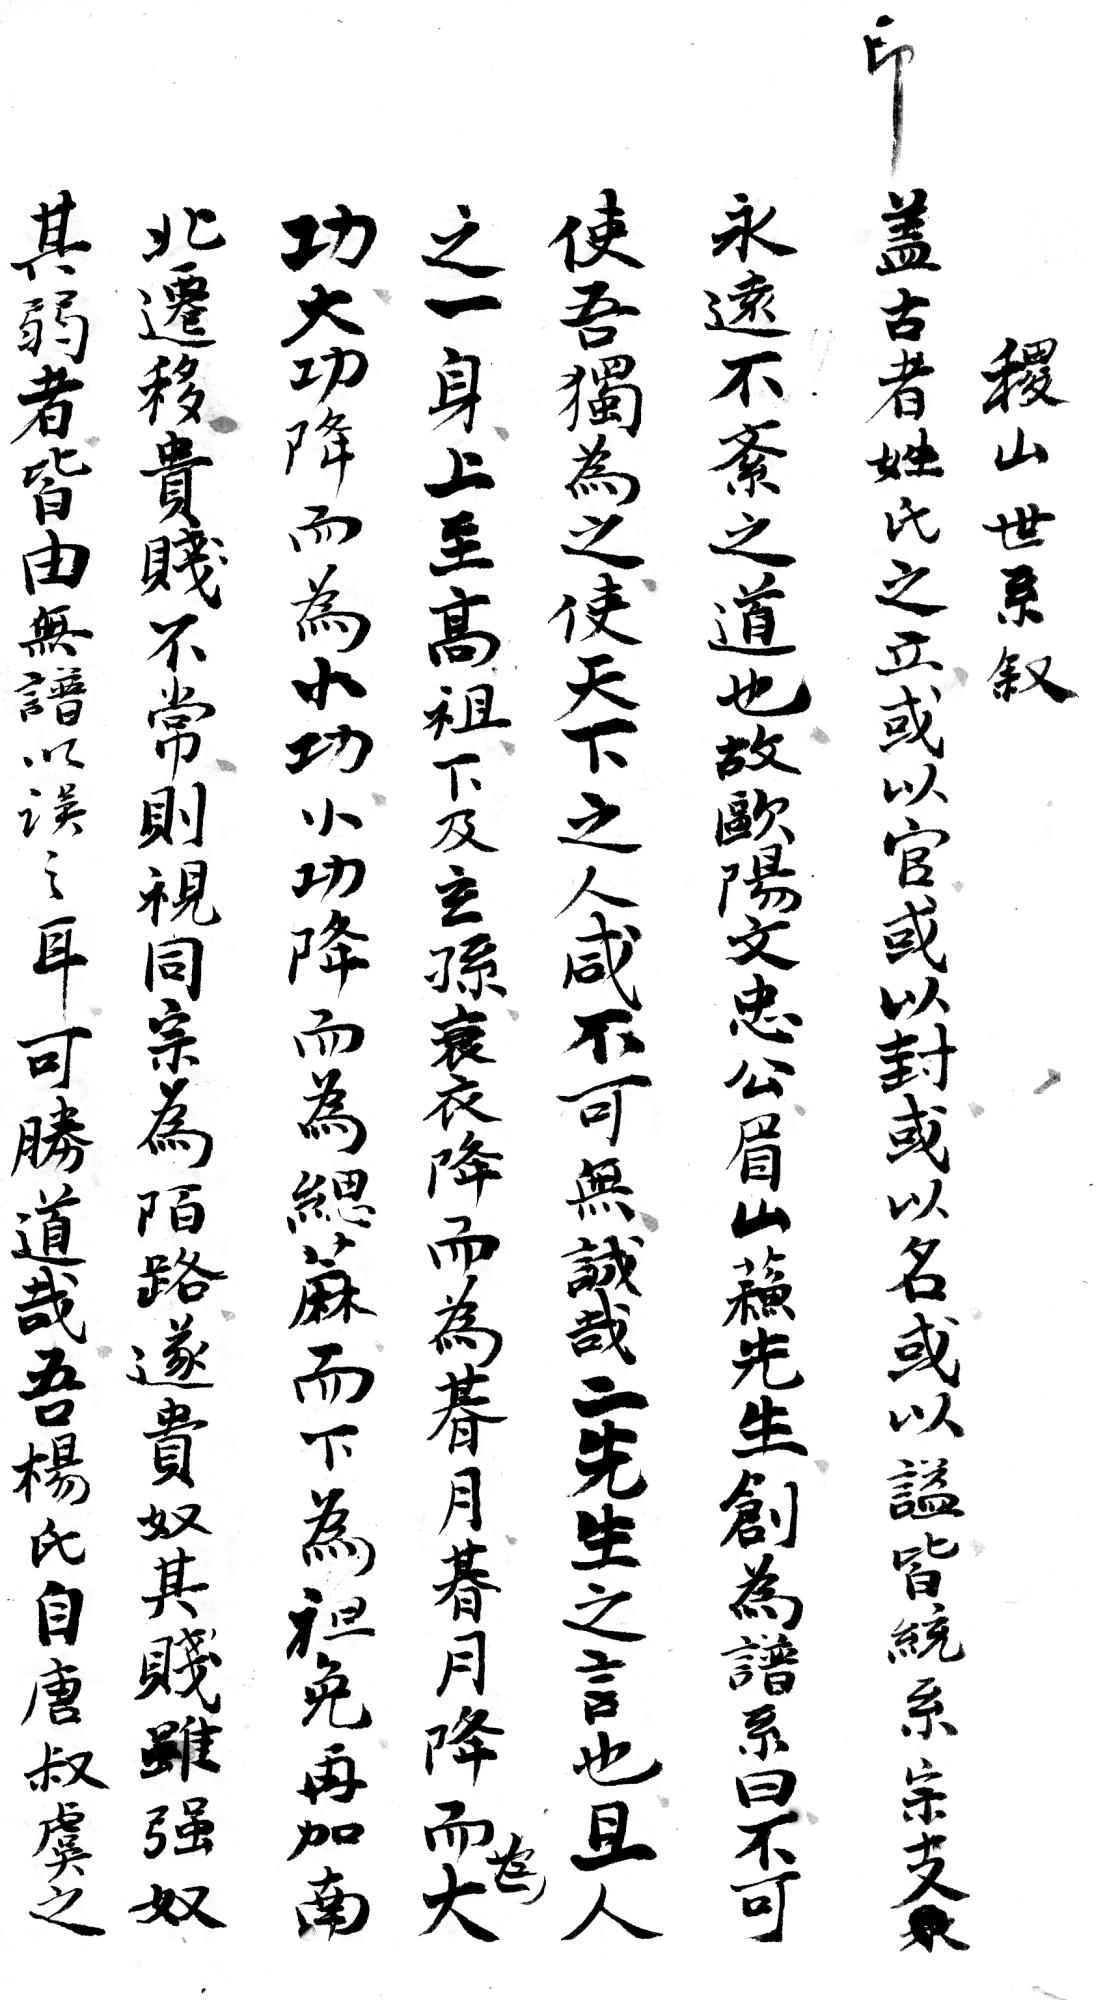 稷山世系叙
印
蓋古者姓氏之立或以官或以封或以名或以謚皆統系宗支
永遠不紊之道也故歐陽文忠公眉山蘓先生創為譜系曰不可
使吾獨為之使天下之人咸不可無誠哉二先生之言也且人
之一身上至高祖下及玄孫衰衣降而為朞月朞月降而為大
功大功降而為小功小功降而為緦蔴而下為袒免再加南
北遷移貴賤不常則視同宗為陌路遂貴奴其賤雖强奴
其弱者皆由無譜以误之耳可勝道哉吾楊氏自唐叔虞之